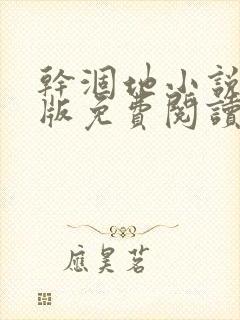 幹涸地小說
版免費閱讀
應昊茗